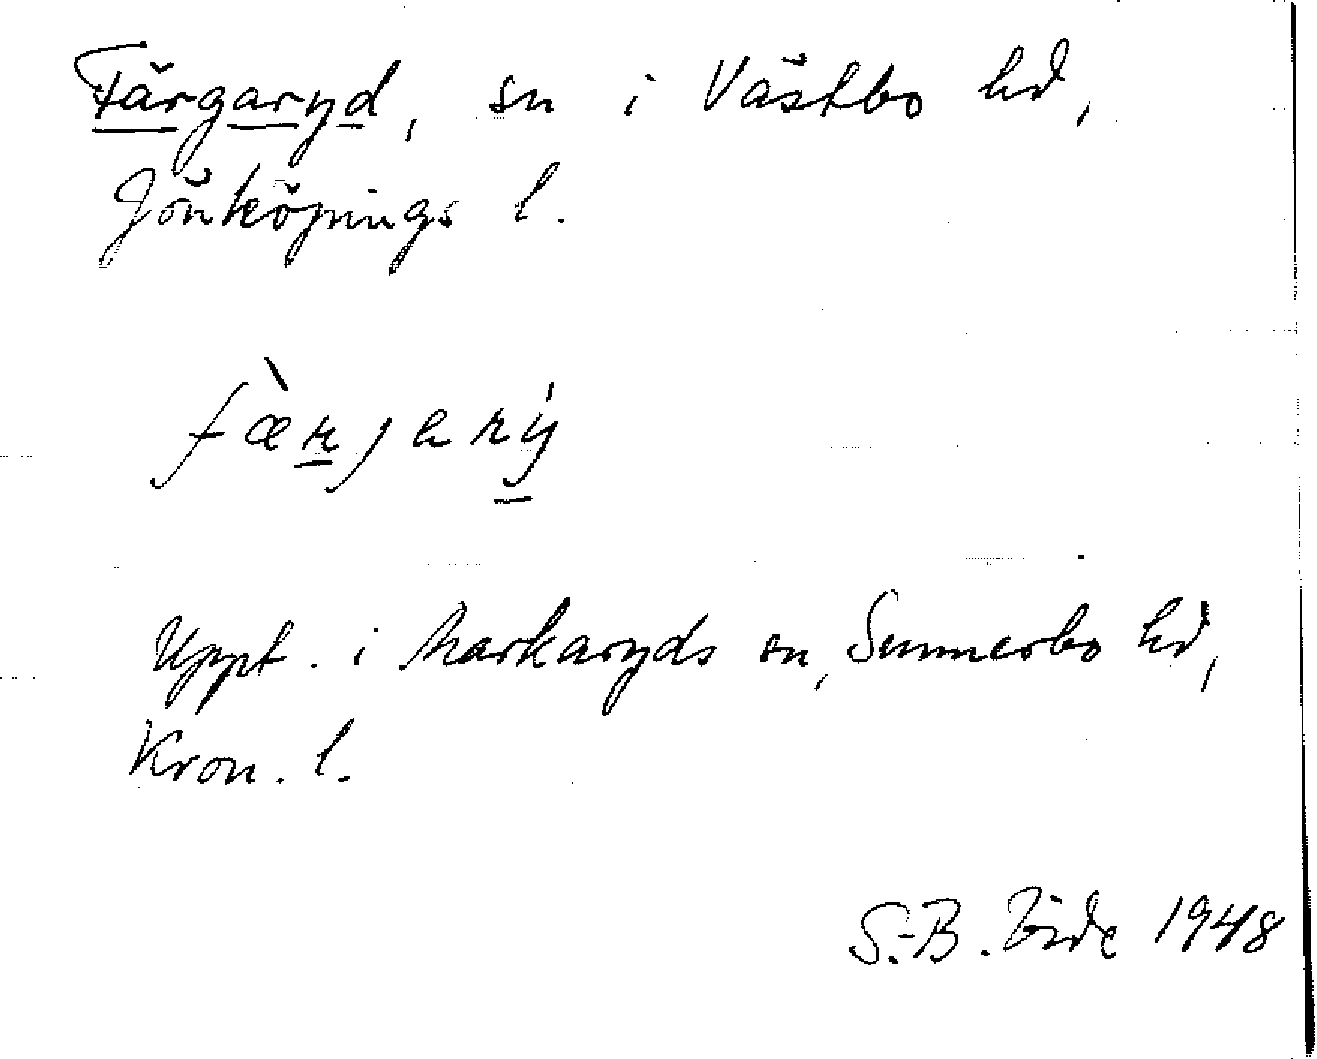 Färgaryd, sn i Västbo hd,
Jönköpings l.
fæ̀rjarý
Uppt. i Markaryds sn, Sunnerbo hd,
Kron. l.
S.-B. Vide 1948